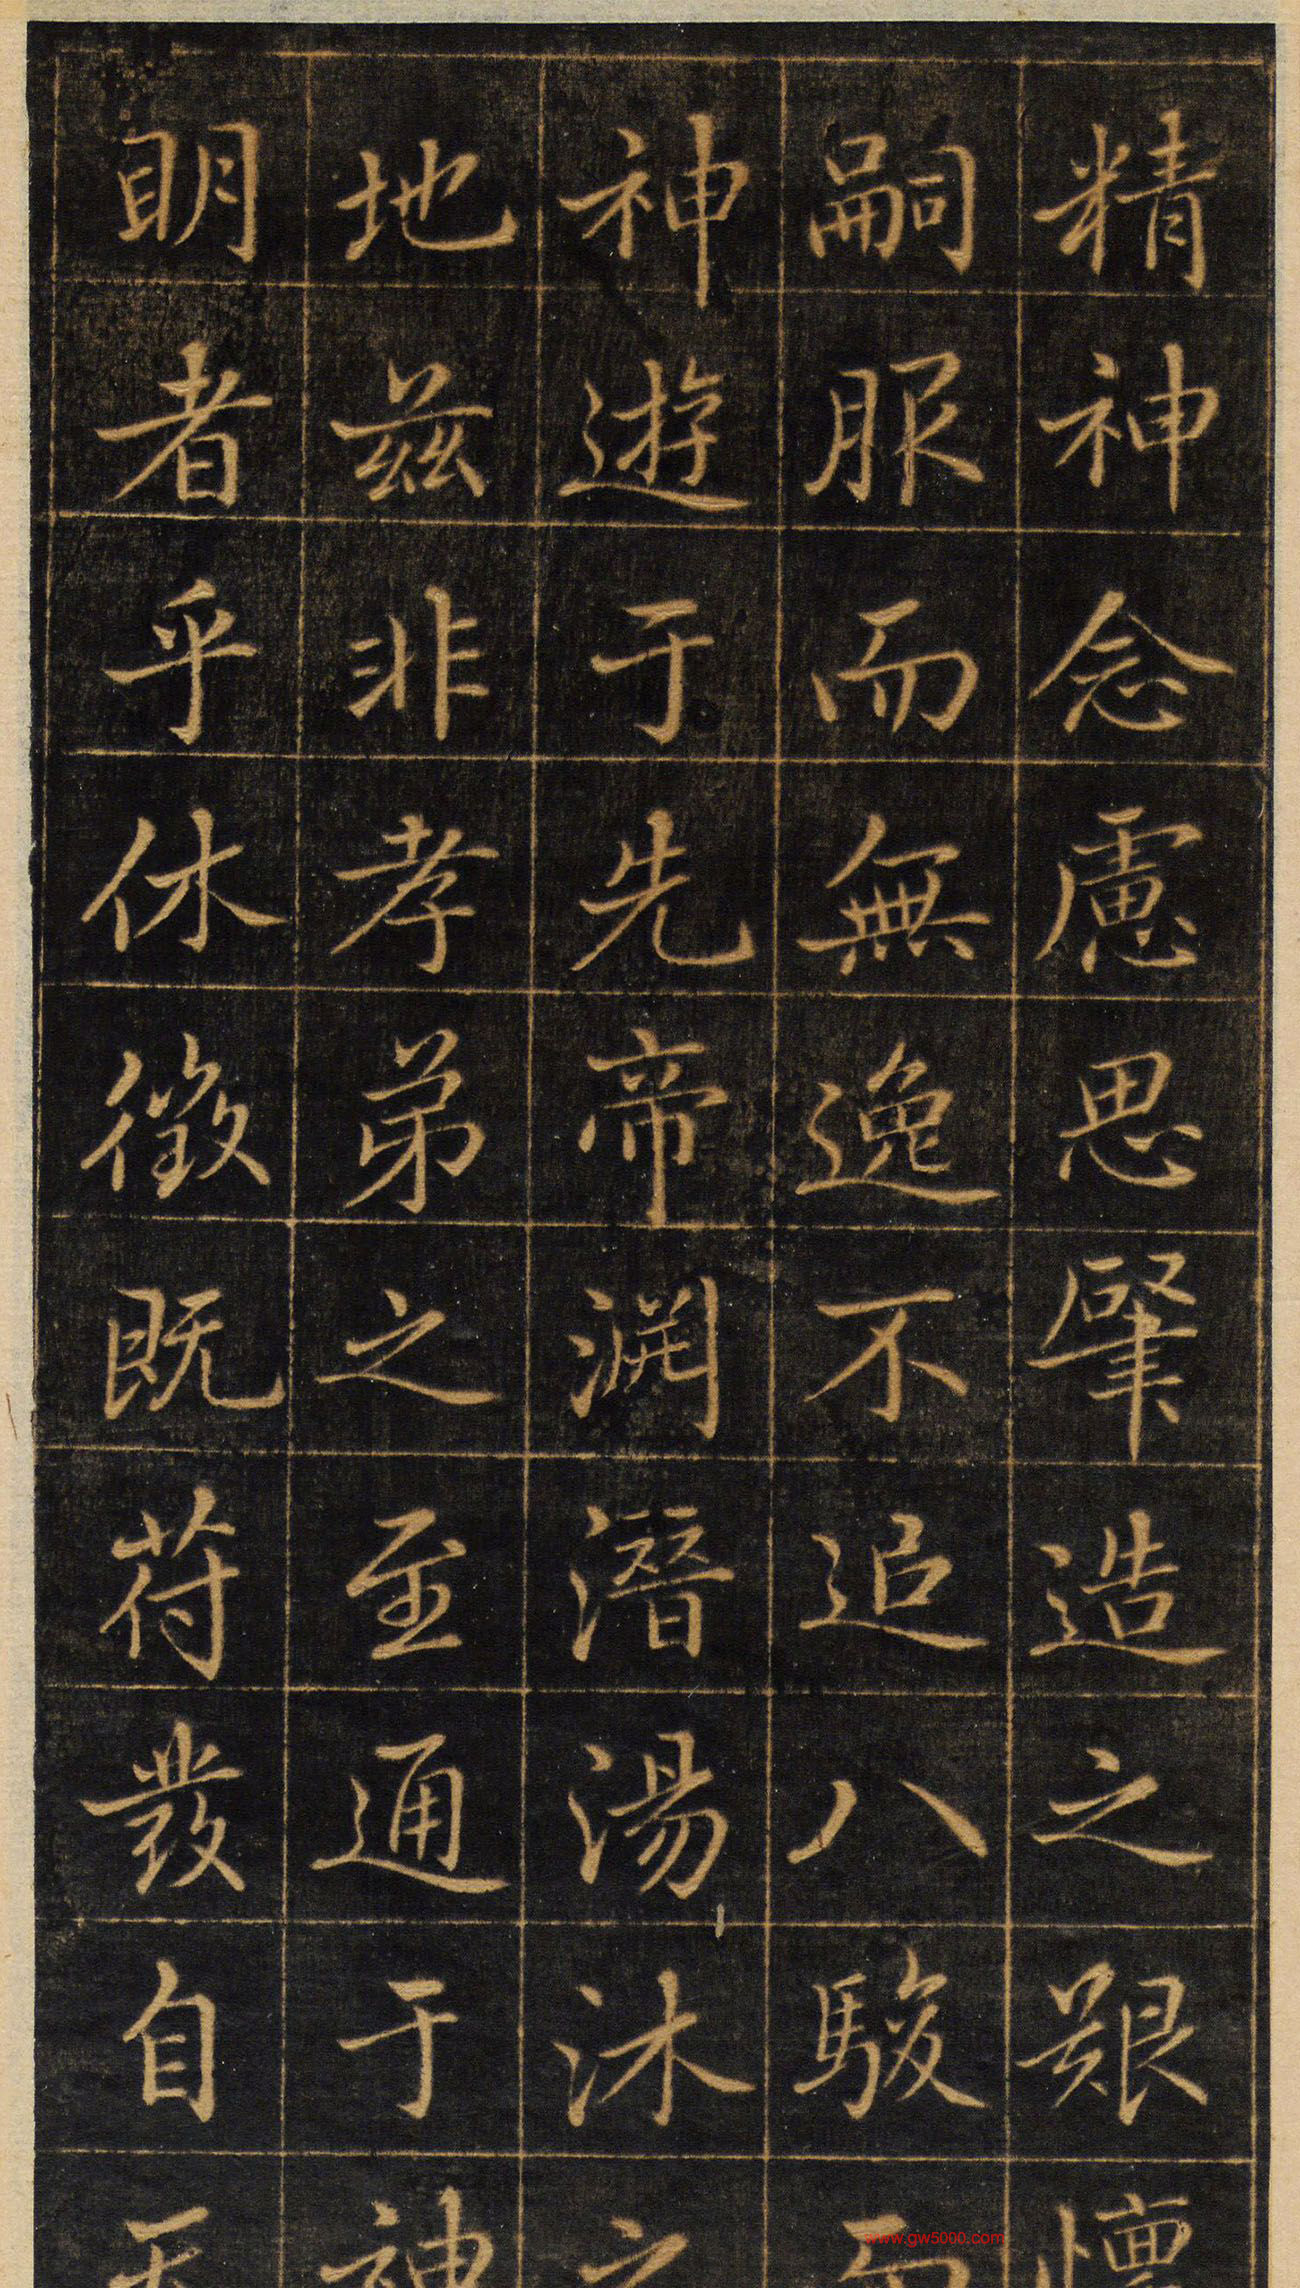 精神念慮思肇造之艱懷
嗣服而無逸不追八駿而
神遊于先帝淵潛湯沐之
地茲非孝弟之至通于神
明者乎休徵既苻發自天
www.gw5000.com